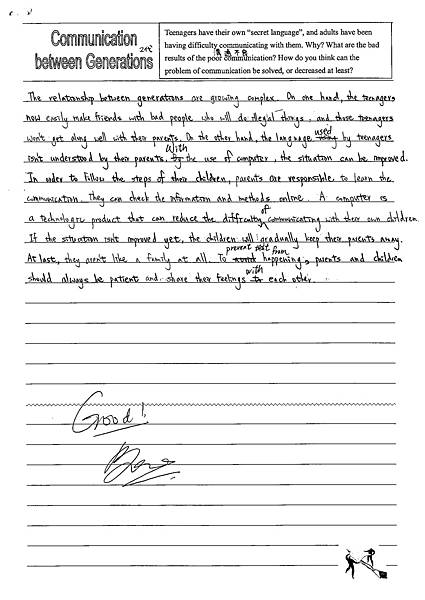 Communication
between Generations
Teenagers have their own "secret language", and adults have been
having difficulty communicating with them. Why? What are the bad
results of the poor communication? How do you think can the
problem of communication be solved, or decreased at least?
The relationship between generations are growing complex. On one hand, the teenagers
now easily make friends with bad people who will do illegal things, and those teenagers
won't get along well with their parents. On the other hand, the language used by teenagers
isn't understood by their parents. With the use of computer, the situation can be improved.
In order to follow the steps of their children, parents are responsible to learn the
communication. They can check the information and methods online. A computer is
a technology product that can reduce the difficulty of communicating with their own children.
If the situation isn't improved yet, the children will gradually keep their parents away.
At last, they aren't like a family at all. To prevent from happening, parents and children
should always be patient and share their feelings with each other.
Good!